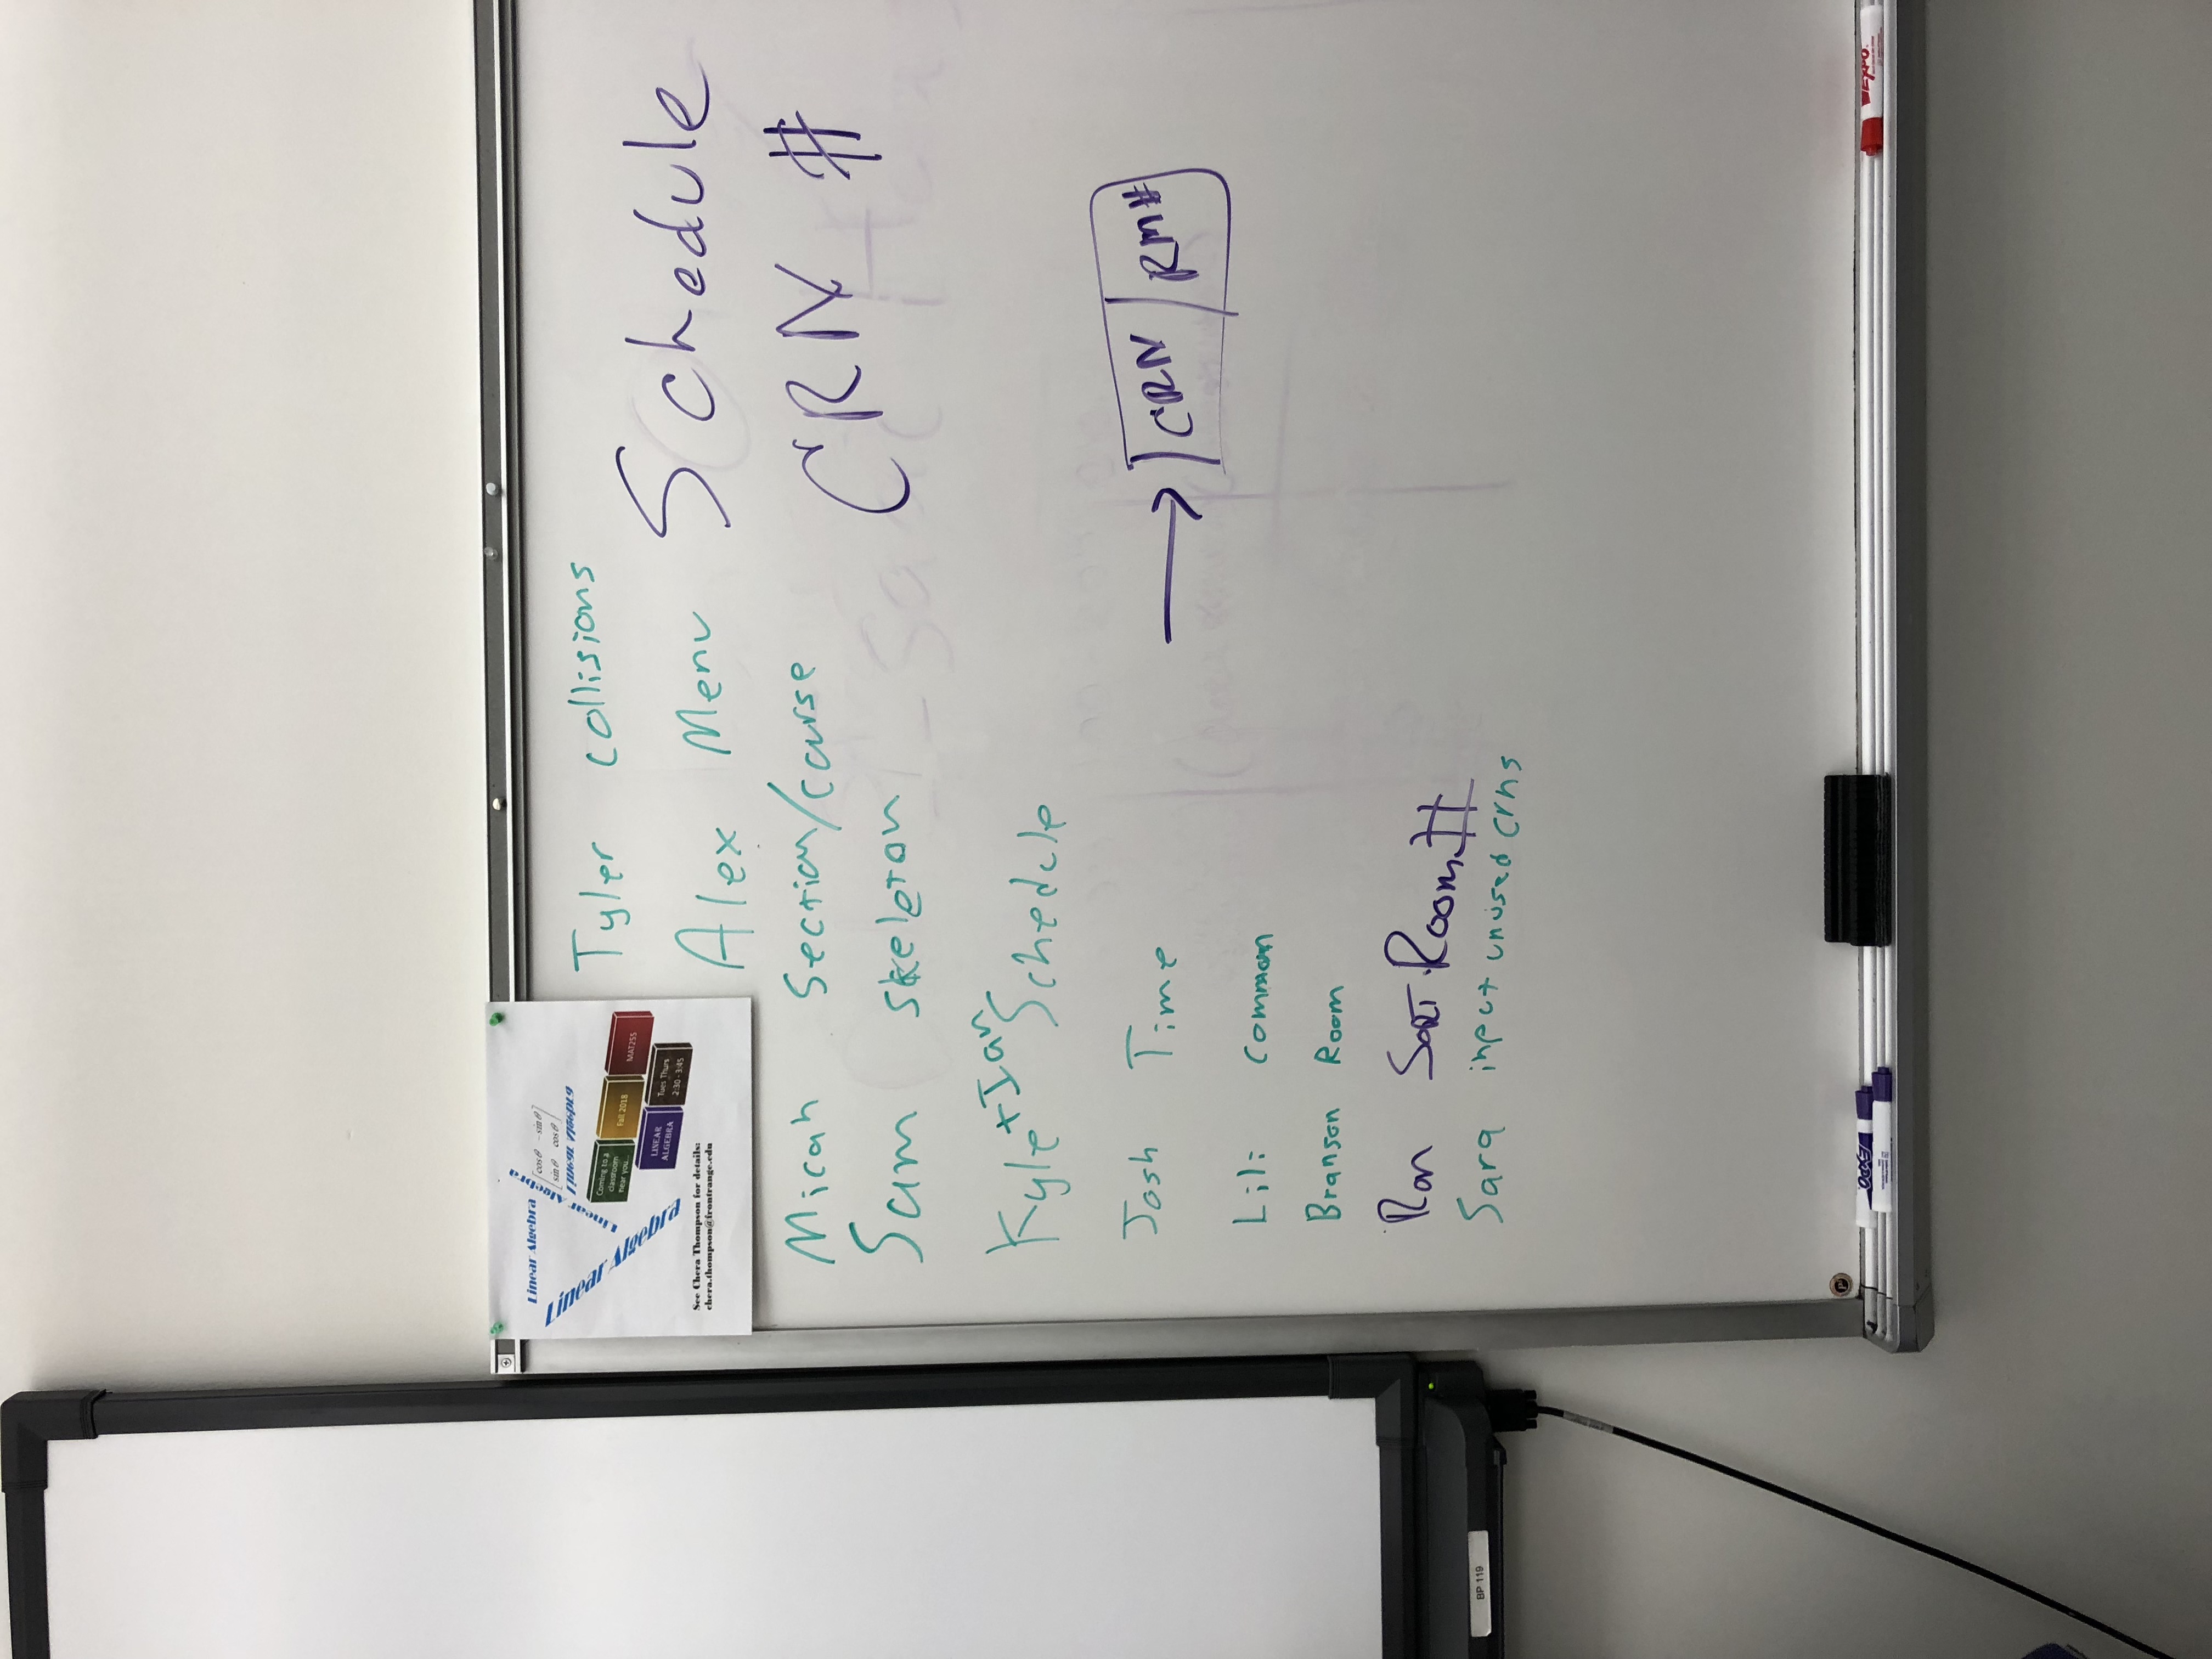 Linear Algebra
Linear Algebra
Linear Algebra
Linear Algebra
cos θ − sin θ
sin θ cos θ
Coming to a
classroom
near you...
Fall 2018
MAT255
LINEAR
ALGEBRA
Tues Thurs
2:30 - 3:45
See Chera Thompson for details:
chera.thompson@frontrange.edu
Tyler collisions
Alex Menu
Micah Section/course
Sam skeleton
Kyle + Ian Schedule
Josh Time
Lili common
Branson Room
Ron SORT Room #
Sara input unused crns
Schedule
CRN #
CRN RM#
BP 119
EXPO
EXPO